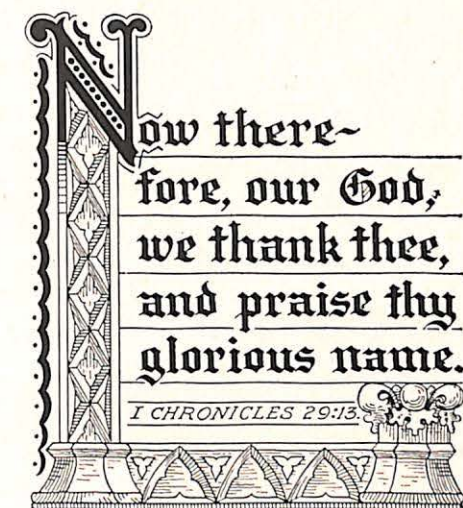 Now there~
fore, our God,
we thank thee,
and praise thy
glorious name.
I CHRONICLES 29:13.